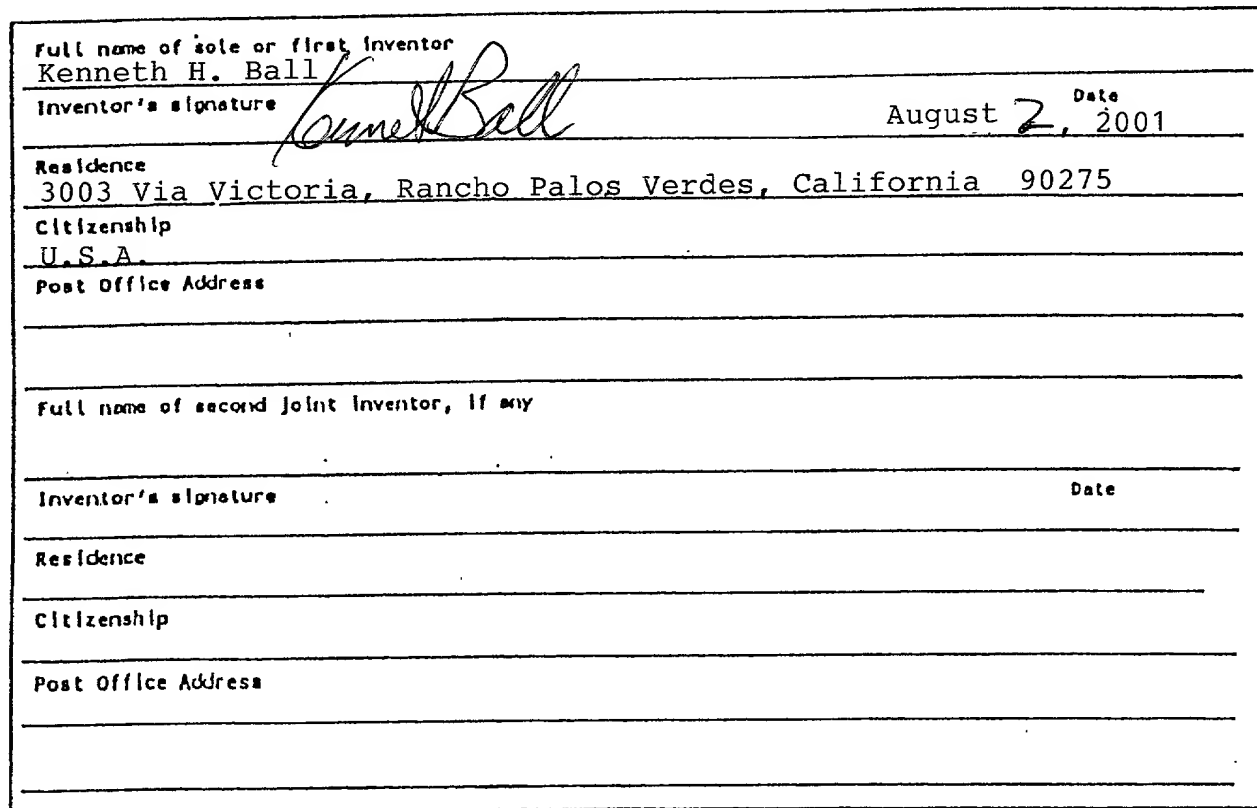 Full name of sole or first inventor
Kenneth H. Ball
Inventor's signature Kenneth Ball Date
August 2, 2001
Residence
3003 Via Victoria, Rancho Palos Verdes, California 90275
Citizenship
U.S.A.
Post Office Address
Full name of second joint inventor, if any
Inventor's signature Date
Residence
Citizenship
Post Office Address